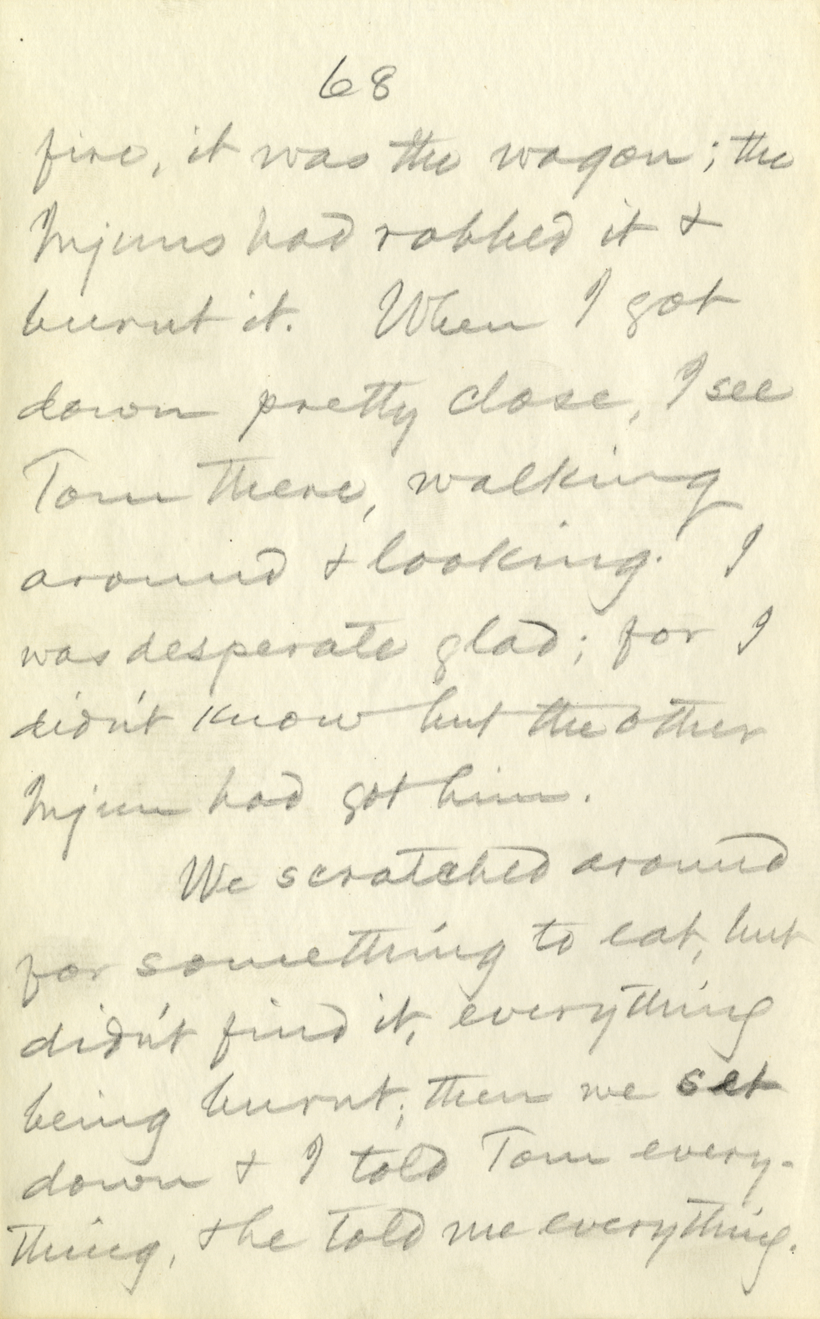 68
fire, it was the wagon; the
Injuns had robbed it &
burnt it. When I got
down pretty close, I see
Tom there, walking
around & looking. I
was desperate glad; for I
didn't know but the other
Injun had got him.
We scratched around
for something to eat, but
didn't find it, everything
being burnt; then we set
down & I told Tom every-
thing, & he told me everything.